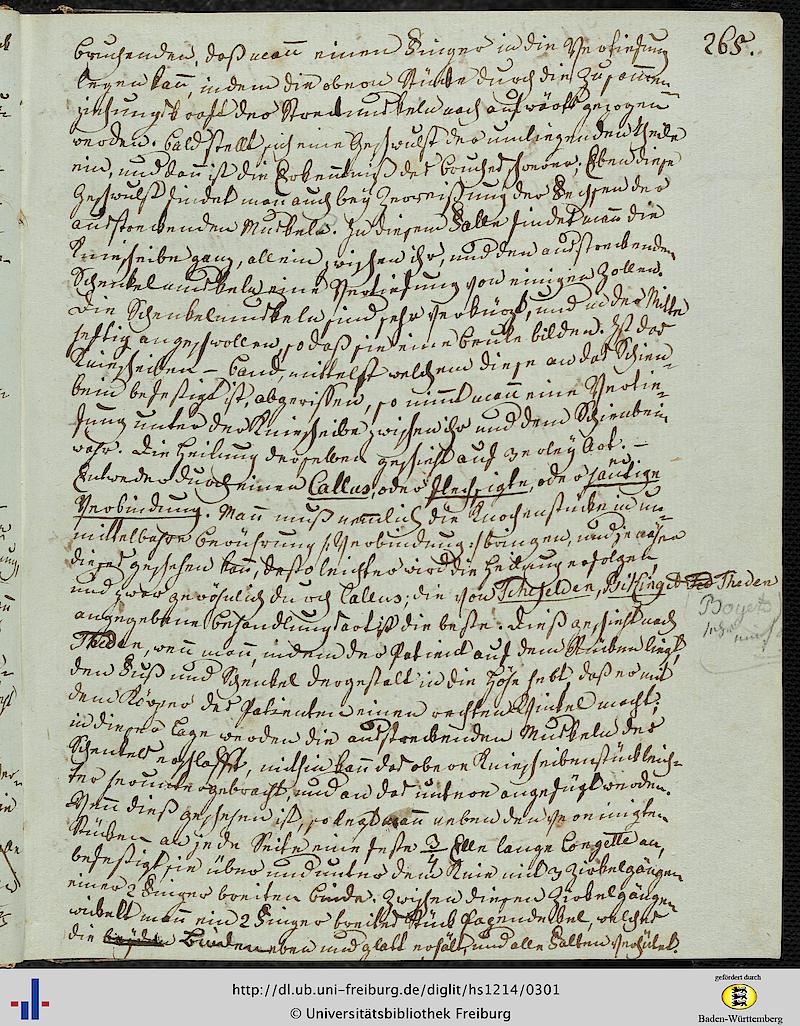 265.
bruchenden, daß mann einen Finger in die Vertiefung
legen kann, indem die obern Stücke durch die Zusammen-
ziehungskraft der Streckmuskeln nach aufwärts gezogen
werden. bald stellt sich eine Geschwulst der umliegenden theile
ein, und dann ist die Erkenntniß des bruches schwerer; Eben diese
Geschwulst findet man auch bey Zerreißung der Sehnen der
ausstreckenden Muskeln. In diesem Falle findet mann die
Kniescheibe ganz, allein zwischen ihr, und den ausstreckenden
Schenkelmuskeln eine Vertiefung von einigen Zollen.
die Schenkelmuskeln sind sehr verkürzt, und in der Mitte
heftig angeschwollen, so daß sie eine beule bilden. Ist das
Kniescheiben-band, mittelst welchem diese an das Schien-
bein befestigt ist, abgerissen, so nimt mann eine Vertie-
fung unter der Kniescheibe zwischen ihr und dem Schienbein
wahr. die Heilung derselben geschieht auf 3erley Art. —
Entweder durch einen Callus, oder flechsigte, oder häutige
Verbindung. Mann muß nemlich die Knochenstücke in un-
mittelbahre berührung /: Verbindung :/ bringen, und je näher
dieses geschehen kann, desto leichter wird die Heilung erfolgen,
und zwar gewöhnlich durch Callus; die von Scheselden, Bilking et Theden
angegebene behandlungsart ist die beste. Dieß geschieht nach
Theden, wenn mann, indem der Patient auf dem Rücken liegt,
den Fuß und Schenkel dergestalt in die Höhe hebt, daß er mit
dem Körper des Patienten einen rechten Winkel macht;
in dieser Lage werden die ausstreckenden Muskeln des
Schenkels erschlafft, mithin kann das obere Kniescheibenstück leich-
ter heruntergebracht, und an das untere angefügt werden.
Wenn dieß geschehen ist, so legt mann neben den vereinigten
Stücken an jede Seite eine feste 3/4 Elle lange Longette an,
befestigt sie über und unter dem Knie mit 3 Zirkelgängen
einer 2 Finger breiten binde. Zwischen diesen Zirkelgängen
wickelt mann ein 2 Finger breites Stück Papendekel, welches
die Binden eben und glatt erhält, und alle Falten verhütet.
Boyer
http://dl.ub.uni-freiburg.de/diglit/hs1214/0301
© Universitätsbibliothek Freiburg
gefördert durch
Baden-Württemberg